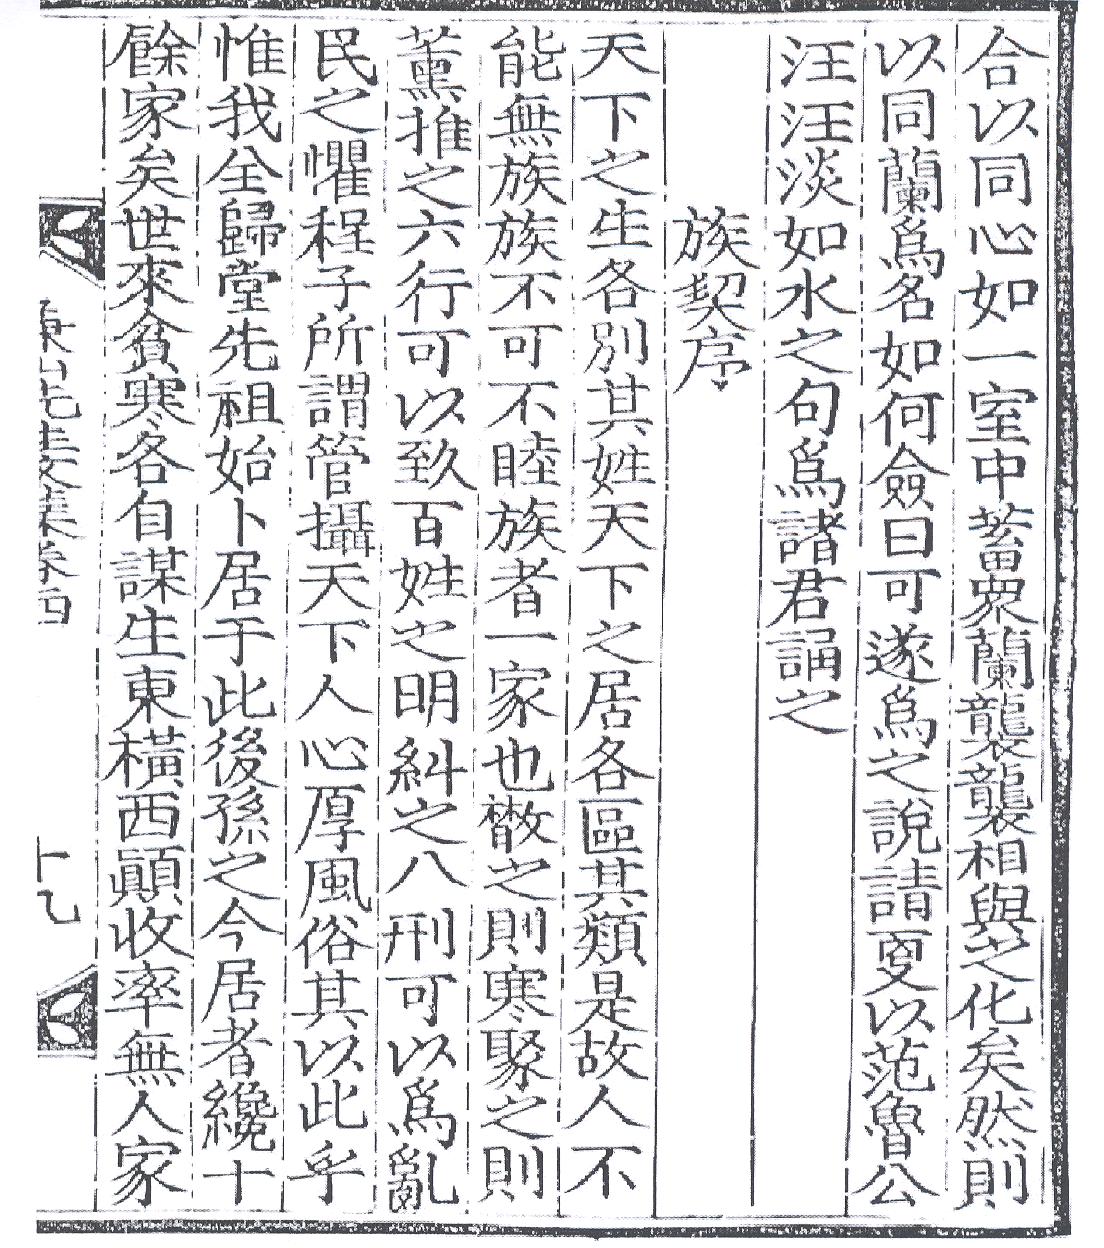 合以同心如一室中蓄衆蘭襲襲相與之化矣然則
以同蘭爲名如何僉曰可遂爲之說請更以范魯公
汪汪淡如水之句爲諸君誦之
族契序
天下之生各別其姓天下之居各區其類是故人不
能無族族不可不睦族者一家也散之則寒聚之則
薰推之六行可以致百姓之明糾之八刑可以爲亂
民之懼程子所謂管攝天下人心厚風俗其以此乎
惟我全歸堂先祖始卜居于此後孫之今居者纔十
餘家矣世來貧寒各自謀生東橫西顚收率無人家
先生文集卷四
十九